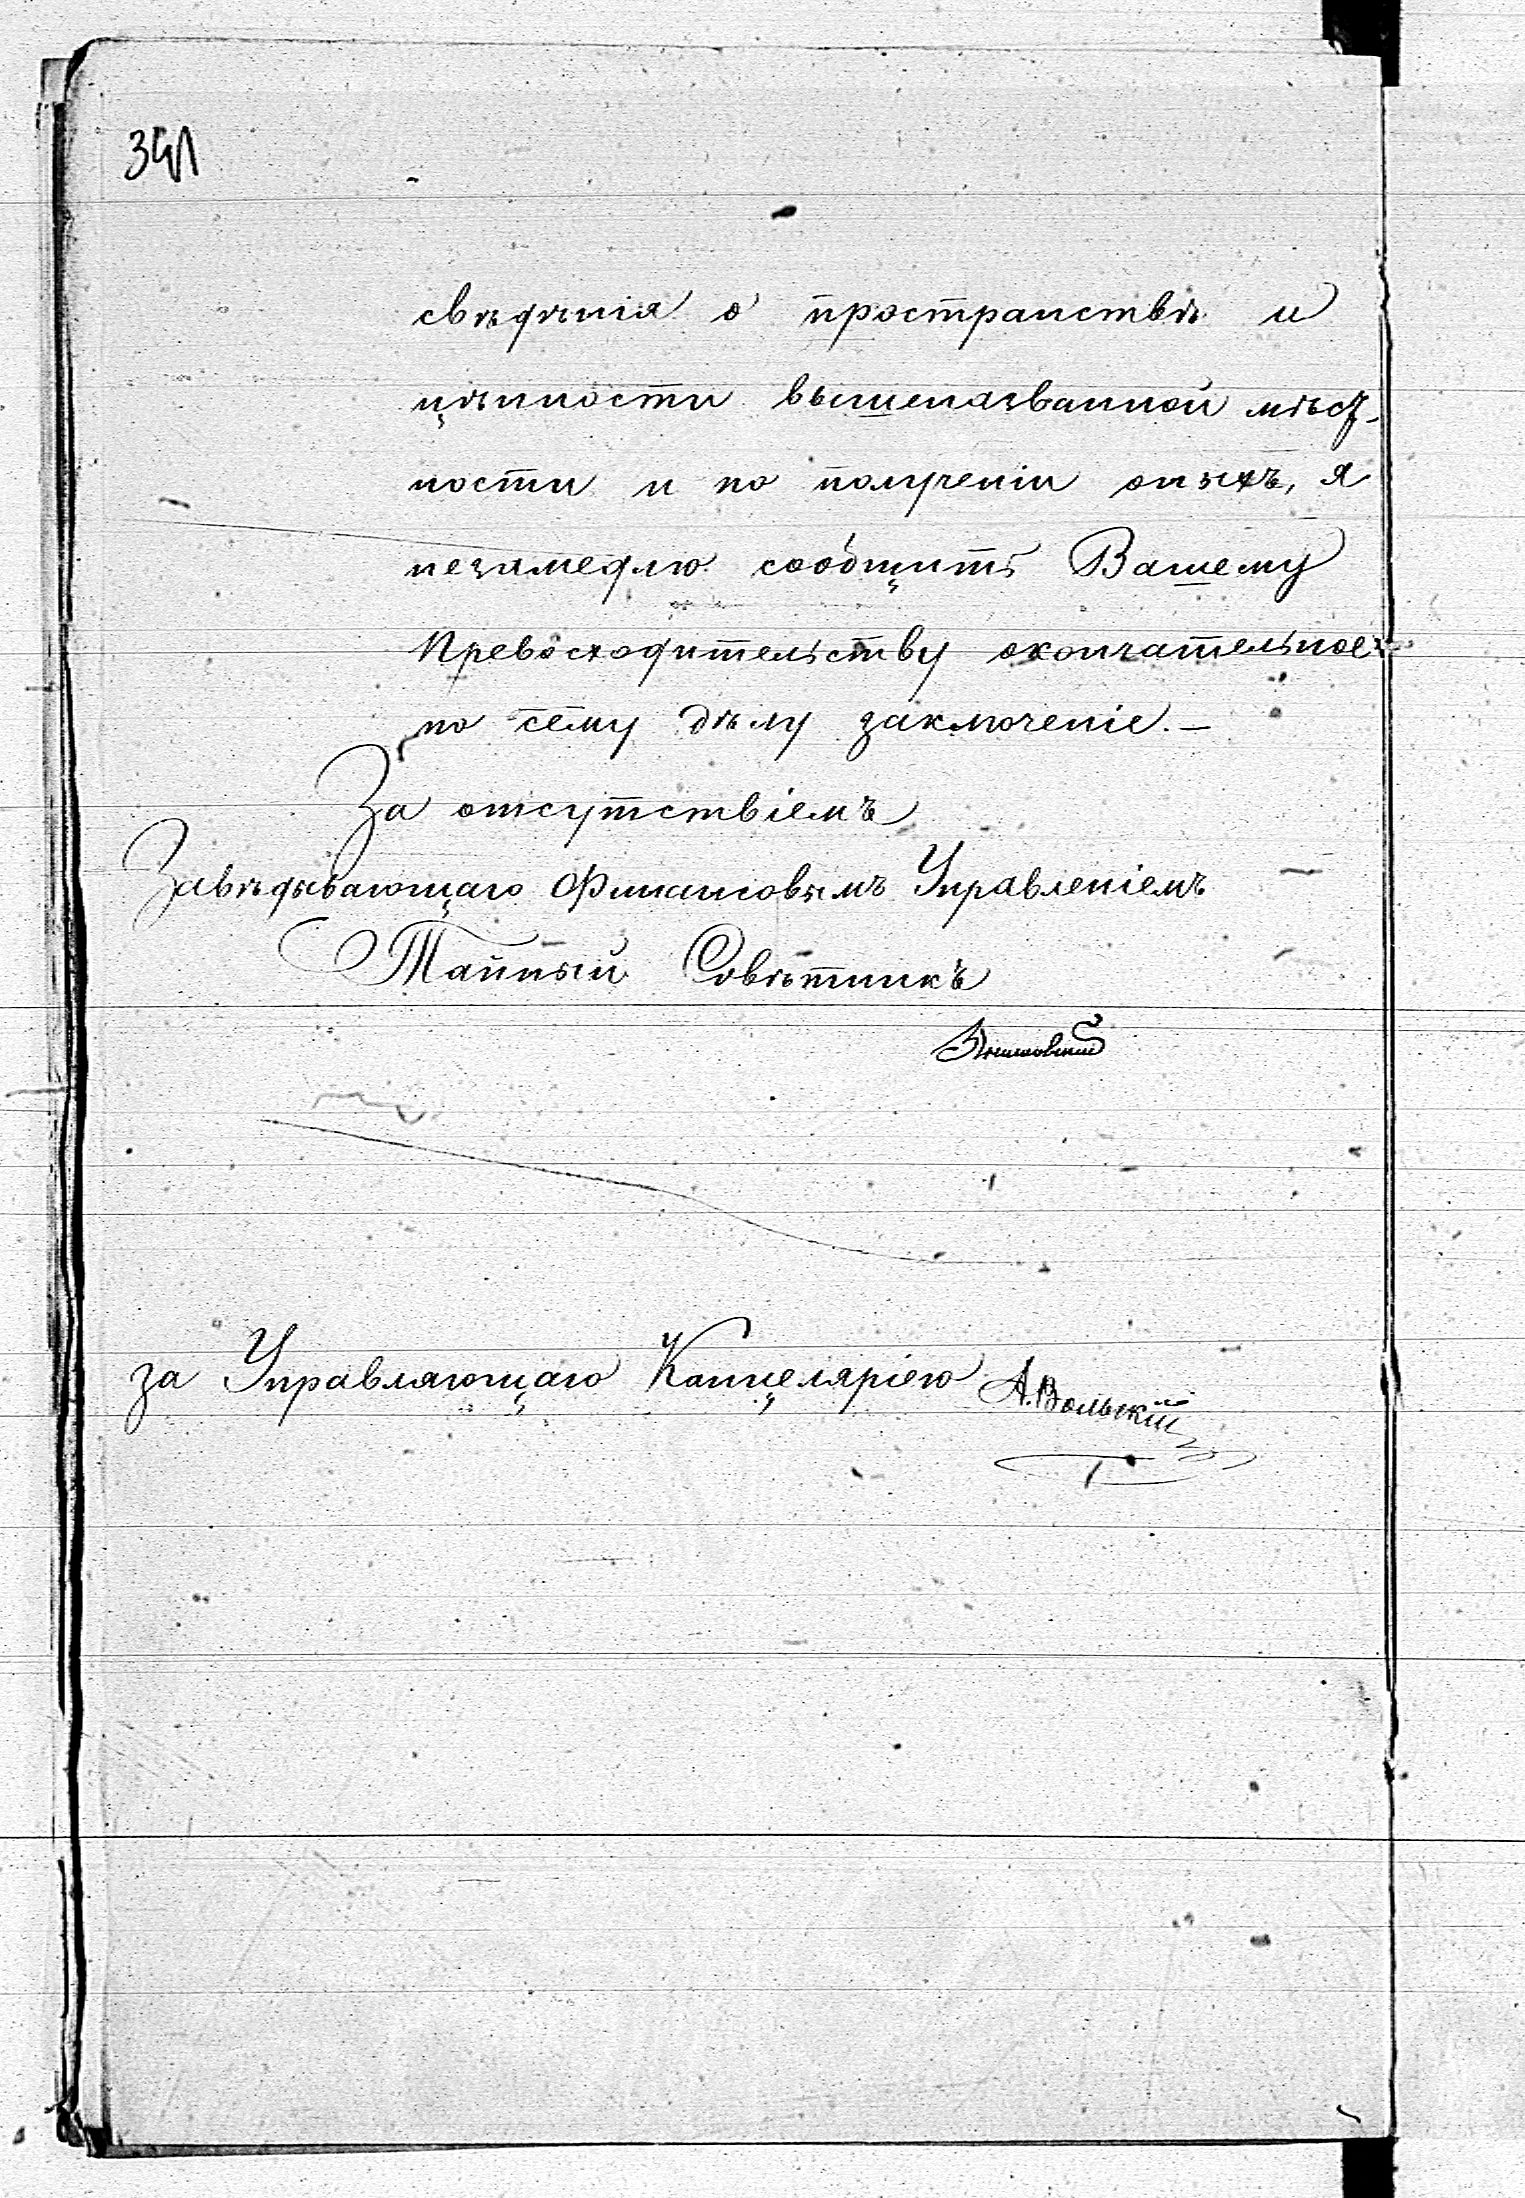 341
свѣдѣнія о пространствѣ и
цѣнности вышеназванной мѣст-
ности и по полученіи оныхъ, я
незамедлю сообщить Вашему
Превосходительству окончательное
по сему дѣлу заключеніе.—
За отсутствіемъ
Завѣдывающаго Финансовымъ Управленіемъ
Тайный Совѣтникъ
за Управляющаго Канцеляріею А. Вольскій